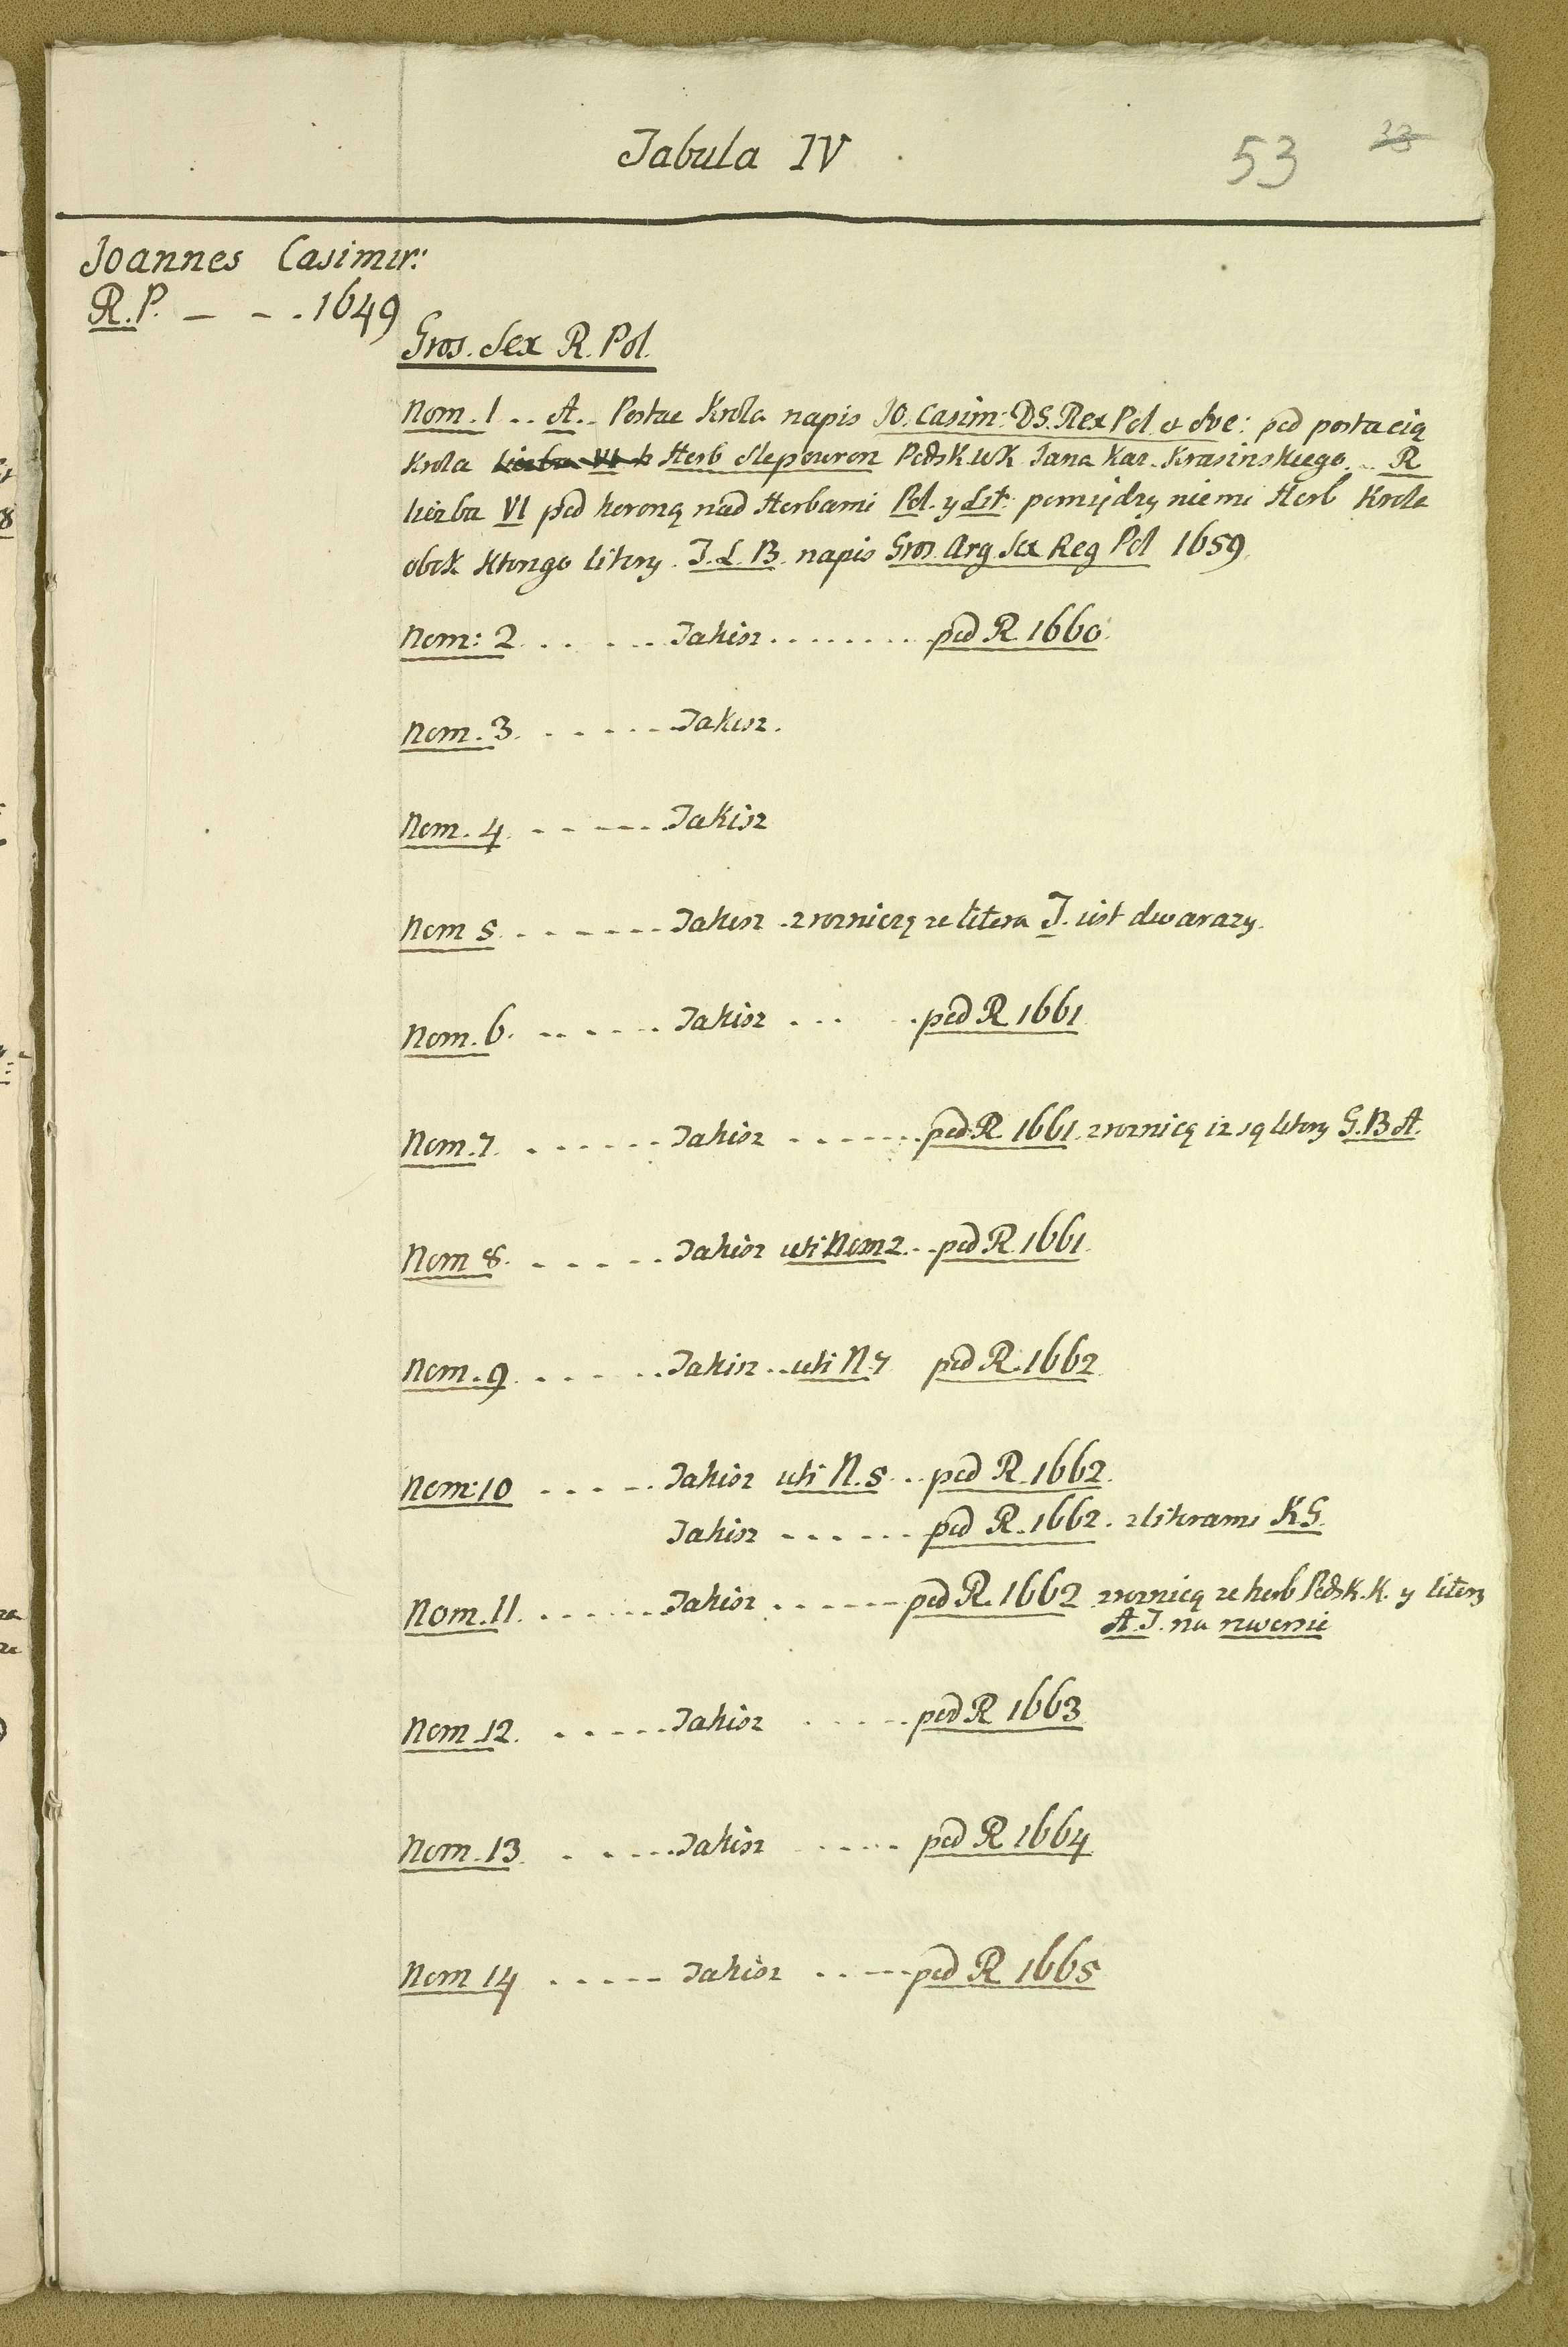 Tabula IV
53
33
Joannes Casimir:
R.P. – – . 1649
Gros. Sex R. Pol.
Nom. 1 .. A.. Postac Krola napis JO. Casim: DS. Rex Pol. et Sve: pod postacią
Krola liczba VI Herb Slepowron Podsk. WK Jana Kaz. Krasinskiego. .. R
liczba VI pod koroną nad Herbami Pol. y Lit: pomiędzy niemi Herb Krola
obok ktorego litery. T. L. B. napis Gros. Arg. Sex Reg Pol 1659.
Nom: 2 . . . . . . Takisz . . . . . . . . . pod R. 1660.
Nom. 3. . . . . . . Takisz.
Nom. 4. . . . . . . Takisz
Nom 5. . . . . . . Takisz . z roznicą ze litera T. iest dwa razy.
Nom. 6. . . . . . . Takisz . . . . pod R 1661
Nom. 7. . . . . . . Takisz . . . . . . pod R. 1661. z roznicą iz są litery G. B A.
Nom 8. . . . . . . Takisz uti Nom 2. . . pod R. 1661.
Nom. 9. . . . . . . Takisz . . uti N. 7 pod R. 1662.
Nom: 10 . . . . . Takisz uti N. 5. . . pod R. 1662.
Takisz . . . . . . pod R. 1662. z literami KG.
Nom. 11. . . . . . . Takisz . . . . . . pod R. 1662 z roznicą ze herb Podsk. K. y litery
A. T. na rwersie
Nom 12. . . . . . . Takisz . . . . . pod R 1663
Nom. 13. . . . . . . Takisz . . . . . pod R 1664
Nom 14 . . . . . Takisz . . . . . pod R 1665